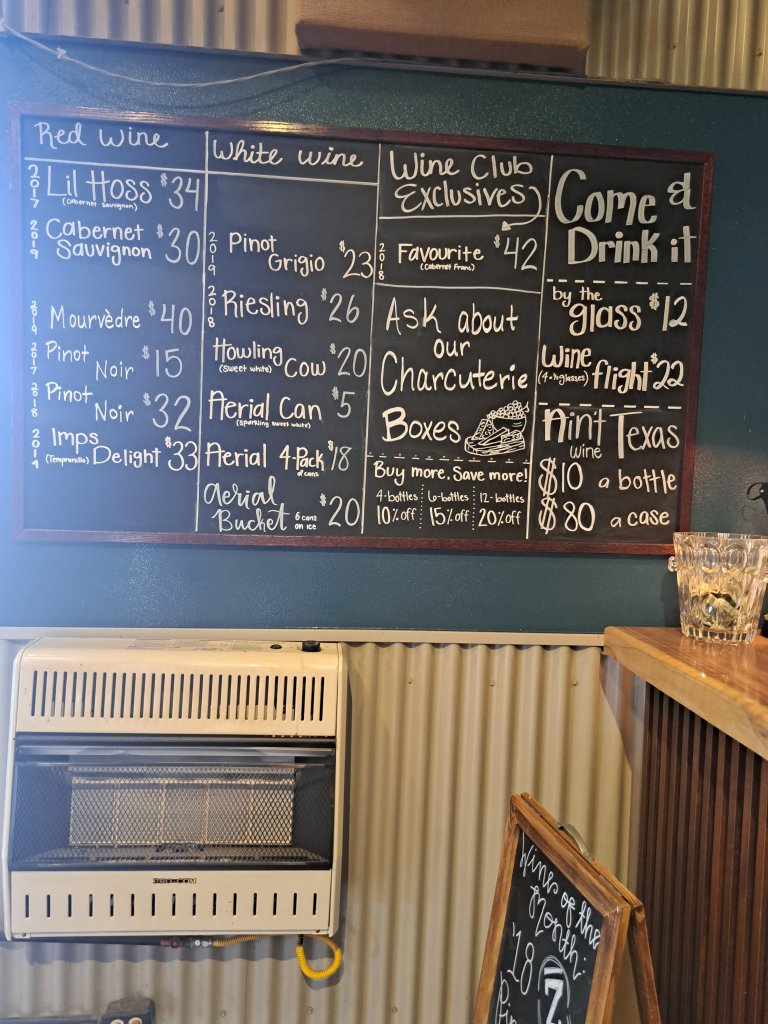 Red Wine
2017 Lil Hoss $34
(Cabernet Sauvignon)
2019 Cabernet Sauvignon $30
2019 Mourvèdre $40
2017 Pinot Noir $15
2018 Pinot Noir $32
2014 Imps
(Tempranillo) Delight $33
White Wine
2019 Pinot Grigio $23
2018 Riesling $26
Howling Cow $20
(Sweet white)
Aerial Can $5
(Sparkling sweet white)
Aerial 4-Pack $18
of cans
Aerial
Bucket 6 cans on ice $20
Wine Club
Exclusives
2018 Favourite $42
(Cabernet Franc)
Ask about
our
Charcuterie
Boxes
Buy more, Save more!
4-bottles 6-bottles 12-bottles
10% off 15% off 20% off
Come &
Drink it
by the
glass $12
Wine flight $22
Nin't Texas
wine
$10 a bottle
$80 a case
PRO-COM
Wines of the
Month
'18
Z